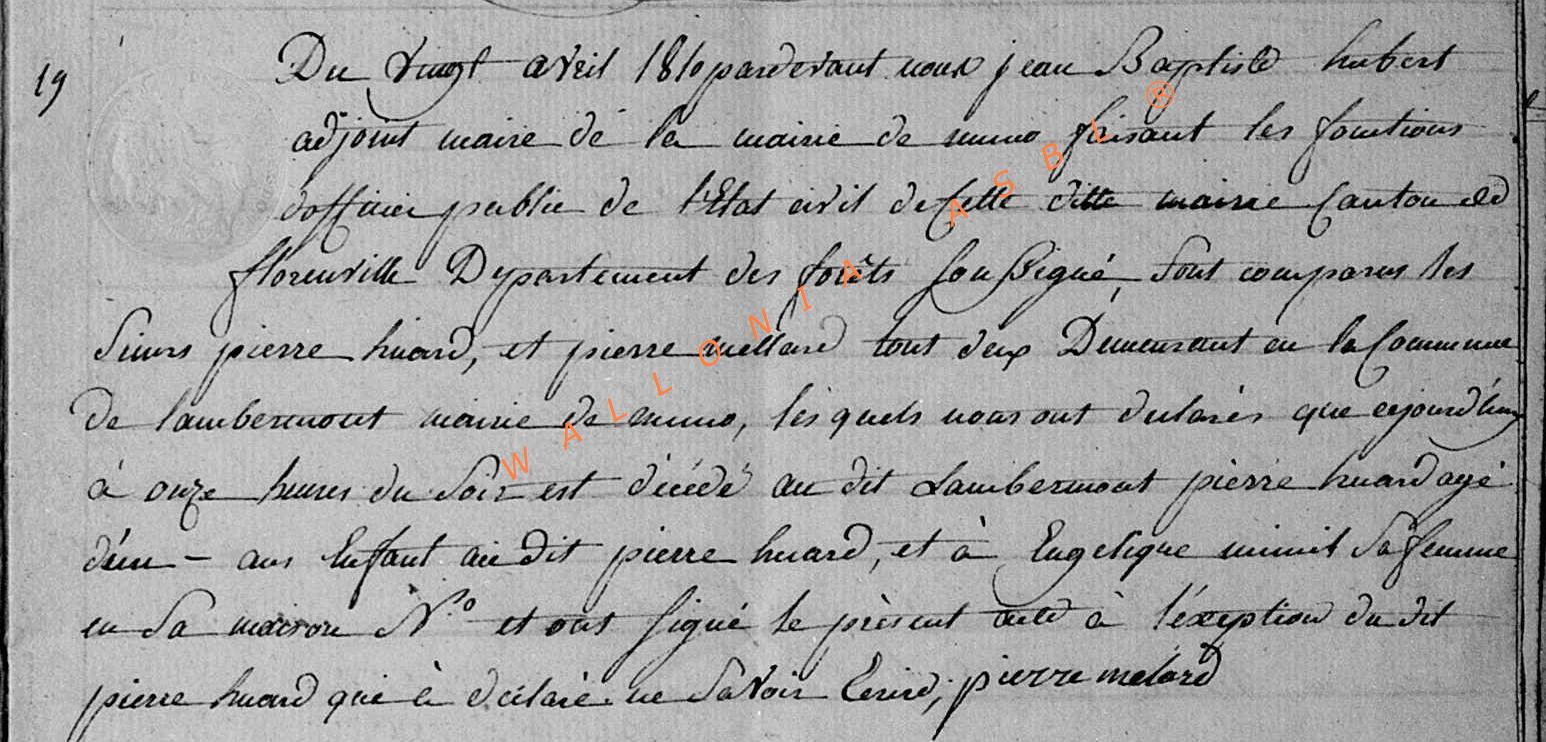 19
Du Vingt avril 1810 pardevant nous jean Baptiste hubert
adjoint maire de la mairie de muno faisant les fonctions
dofficier public de l'Etat civil de Cette ditte mairie Canton de
florenville Département des forêts Soussigné, Sont comparus les
Sieurs pierre huard, et pierre mellard tout deux Demeurant en la Commune
de lambermont mairie de muno, lesquels nous ont declarés que cejourd'huy
à onze heures du Soir est décédé au dit Lambermont pierre huard agé
d'un - ans Enfant au dit pierre huard, et à Engelique minit Sa femme
en Sa maison N.o et ont Signé le présent acte à l'éxeption du dit
pierre huard qui à déclaré ne Savoir Ecrire, pierre melard
WALLONIA ASBL ®